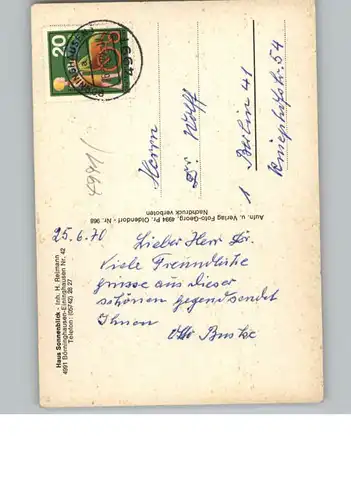 20
4991
4991/
Herrn
Dr. Wolff
1 Berlin 41
54
Aufn. u. Verlag Foto-Georg, 4994 Pr. Oldendorf - Nr. 968
Nachdruck verboten
25.6.70
Lieber Herr Dr.
Viele Freundliche
grüsse aus dieser
schönen gegend sendet
Ihnen
Otto
Haus Sonnenblick - Inh. H. Reimann
4991 Börninghausen-Eininghausen Nr. 42
Telefon: (05742) 26 27